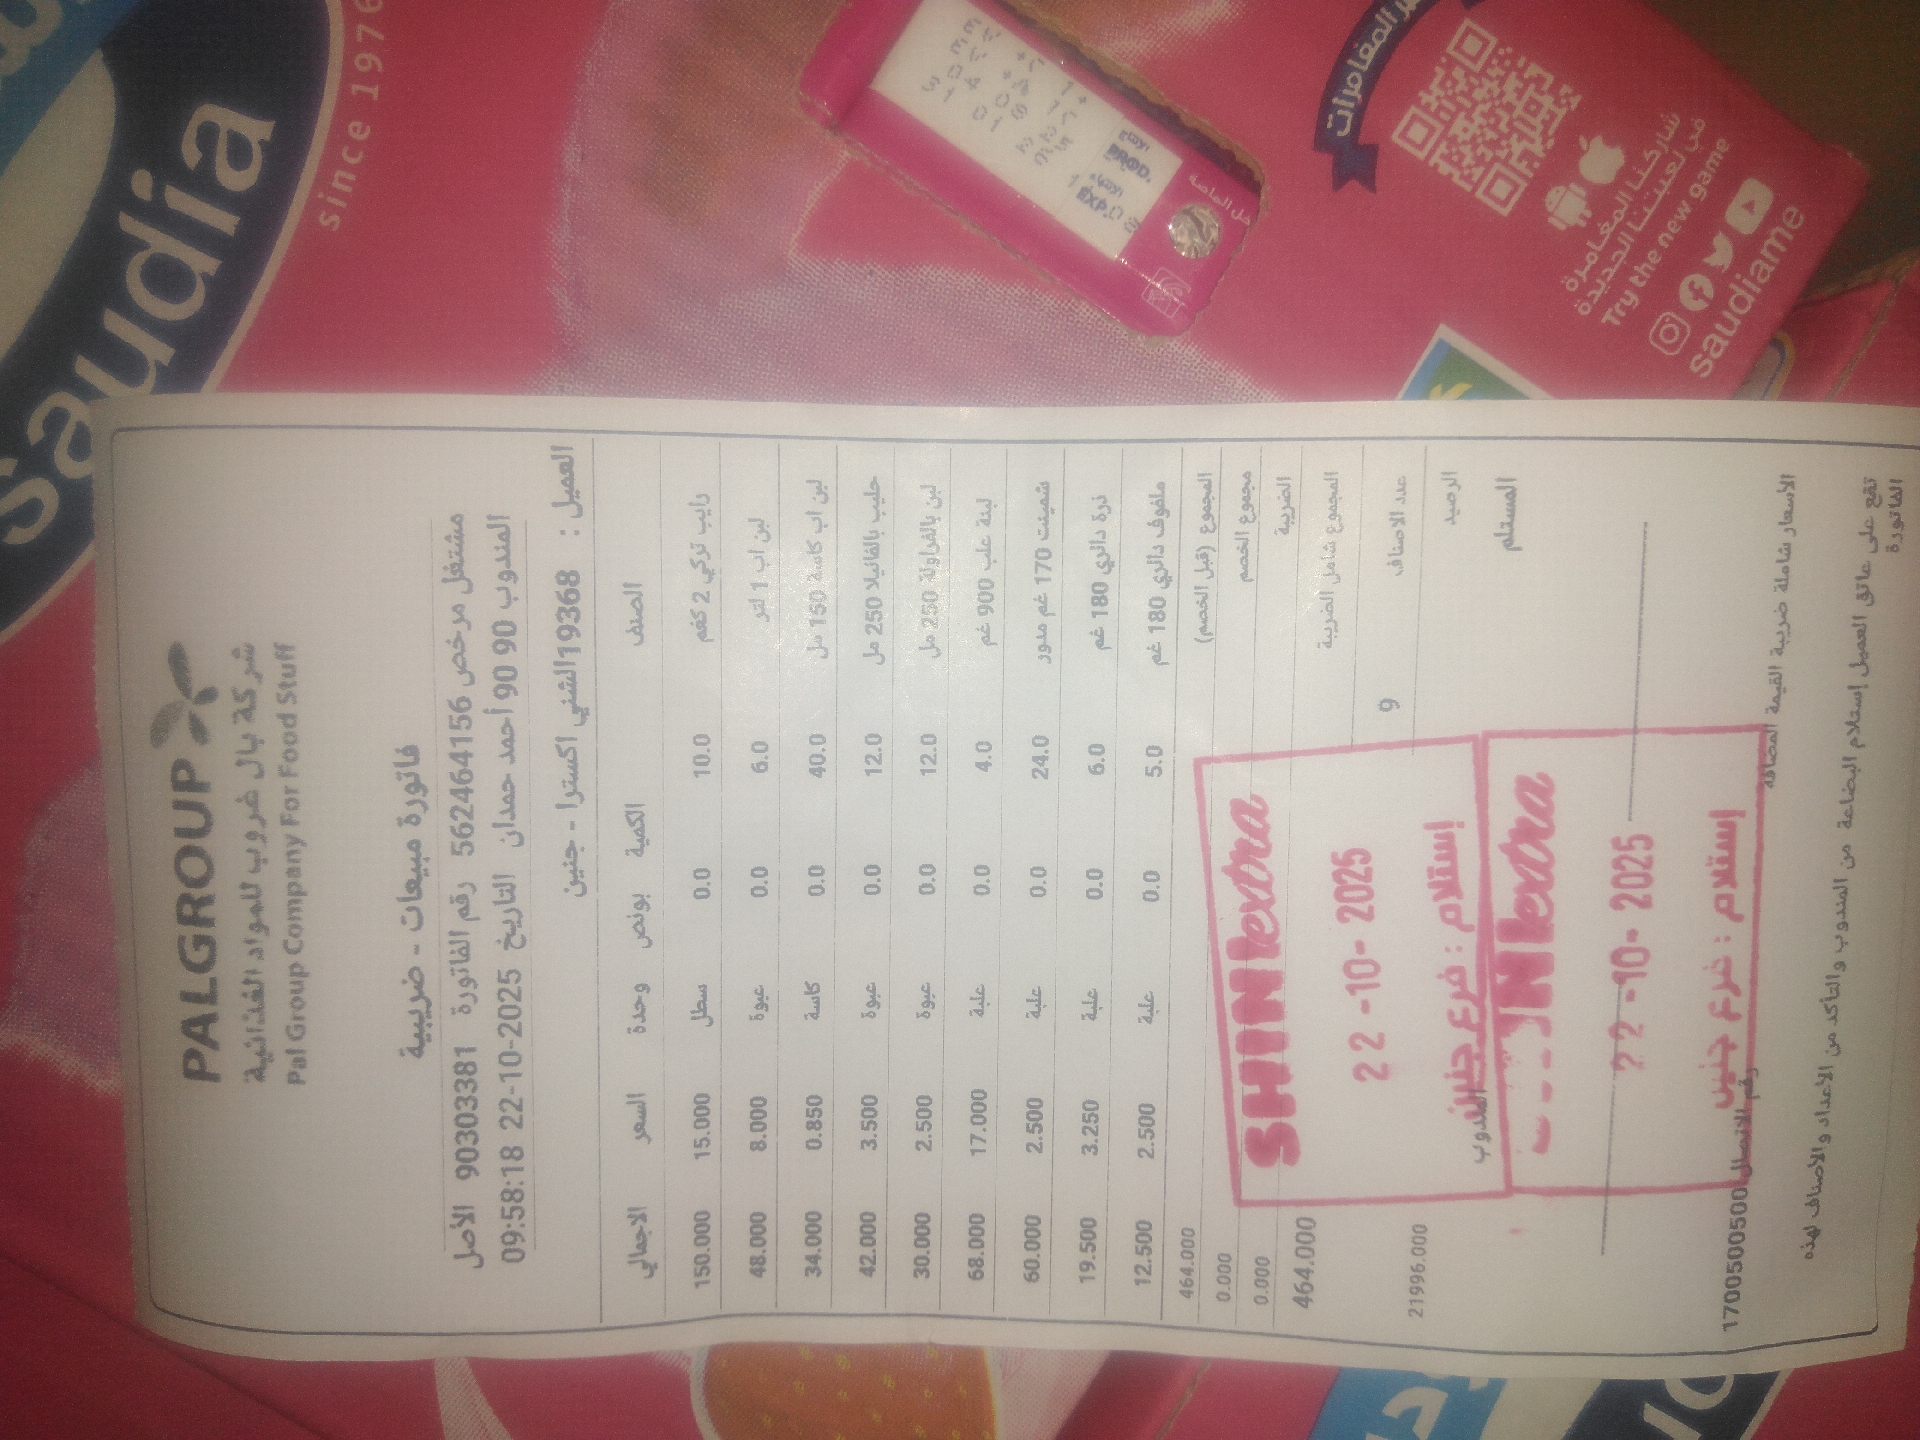 PALGROUP
شركة بال غروب للمواد الغذائية
Pal Group Company For Food Stuff
فاتورة مبيعات - ضريبية
مشتغل مرخص 562464156 رقم الفاتورة 90303381 الأصل
المندوب 90 90 أحمد حمدان التاريخ 22-10-2025 09:58:18
العميل : 19368الشني اكسترا - جنين
الصنف الكمية بونص وحدة السعر الاجمالي
رايب تركي 2 كغم 10.0 0.0 سطل 15.000 150.000
لبن اب 1 لتر 6.0 0.0 عبوة 8.000 48.000
لبن اب كاسة 150 مل 40.0 0.0 كاسة 0.850 34.000
حليب بالفانيلا 250 مل 12.0 0.0 عبوة 3.500 42.000
لبن بالفراولة 250 مل 12.0 0.0 عبوة 2.500 30.000
لبنة علب 900 غم 4.0 0.0 علبة 17.000 68.000
شمينت 170 غم مدور 24.0 0.0 علبة 2.500 60.000
ذرة دالري 180 غم 6.0 0.0 علبة 3.250 19.500
ملفوف دالري 180 غم 5.0 0.0 علبة 2.500 12.500
المجموع (قبل الخصم) 464.000
مجموع الخصم 0.000
الضريبة 0.000
المجموع شامل الضريبة 464.000
عدد الاصناف 9
الرصيد 21996.000
المستلم المندوب
SHINI extra
22 -10- 2025
إستلام : فرع جنين
INI extra
22 -10- 2025
إستلام : فرع جنين
الأسعار شاملة ضريبة القيمة المضافة رقم الاتصال 1700500500
تقع على عاتق العميل إستلام البضاعة من المندوب والتأكد من الأعداد والاصناف لهذه
الفاتورة
Saudia
since 1976
PROD.
EXP.
حل الماصة
شاركنا المغامرة
في لعبتنا الجديدة
Try the new game
saudiame
المغامرات